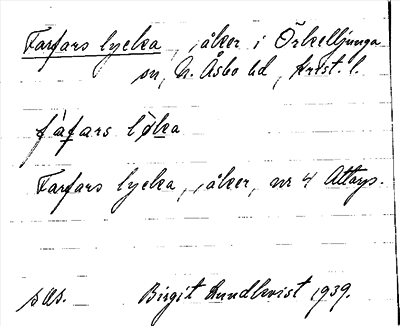 Farfars lycka, åker i Örkelljunga
sn, N. Åsbo hd, Krist. l.
fàfars lỳka
Farfars lycka, åker, nr 4 Attarps.
sas. Birgit Lundkvist 1939.